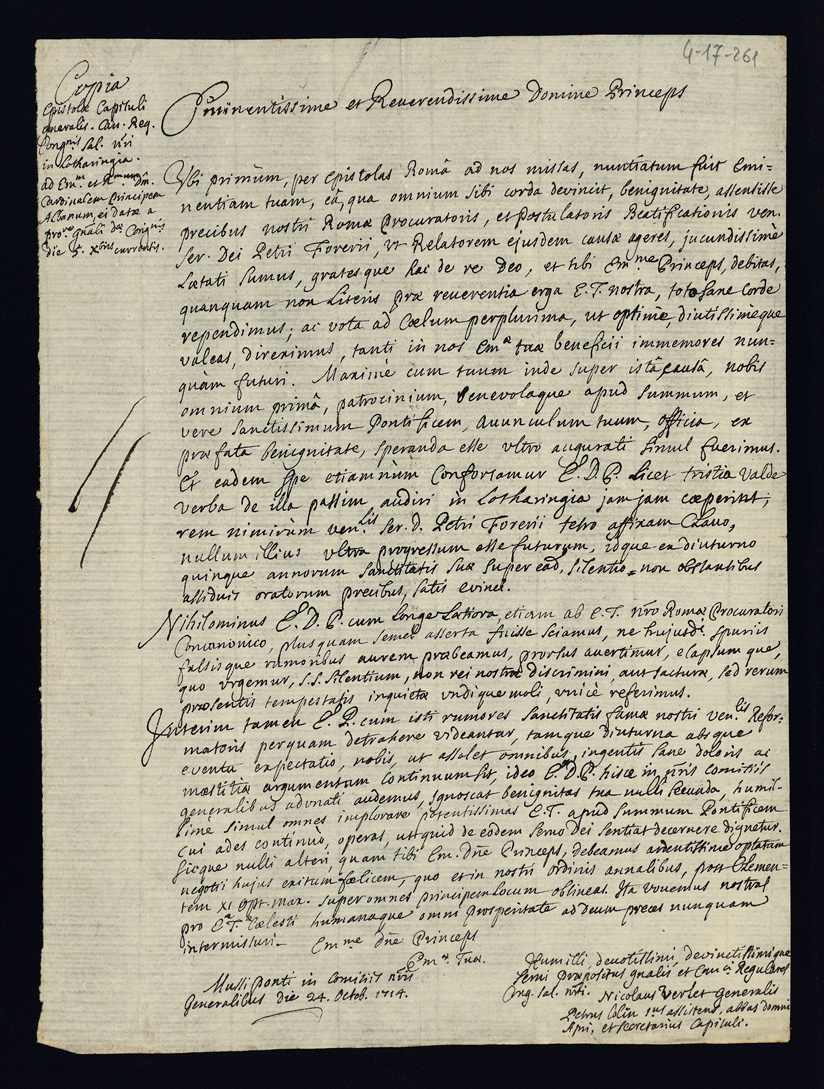 4-17-261
Copia
Epistolæ Capituli
Generalis. Can. Reg.
Congnis Sal. nri
in Lotharingia.
ad Em.m et R.mum Dm.
Cardinalem Principem
Albanum, ei datæ a
die 5. Xbris currentis.
Eminentissime et Reverendissime Domine Princeps
Ubi primùm, per Epistolas Româ ad nos missas, nuntiatum fuit Emi=
nentiam tuam, eâ, qua omnium sibi corda devincit, benignitate, assensisse
precibus nostri Romæ Procuratoris, et Postulatoris Beatificationis ven.
Ser. Dei Petri Forerii, ut Relatorem ejusdem causæ ageres, jucundissimè
Lætati sumus, gratesque hac de re Deo, et tibi Em.me Princeps, debitas,
quanquam non Literis præ reverentia erga E.T. nostra, toto sane corde
rependimus; ac vota ad Cœlum perplurima, ut optime, diutissimeque
valeas, direximus, tanti in nos Em.æ tuæ beneficii immemores nun=
quàm futuri. Maximè cum tuum inde super istâ causâ, nobis
omnium primâ, patrocinium, benevolaque apud summum, et
vere Sanctissimum Pontificem, Avunculum tuum, officia, ex
præfata benignitate, speranda esse ultro augurati simul fuerimus.
Et eadem spe etiamnùm confortamur E.D.P. Licet tristia valde
verba de illa passim audiri in Lotharingia jam jam cœperint;
rem nimirùm ven.lis Ser. D. Petri Forerii tetro affixam Clavo,
nullum illius ultra progressum esse futurum, idque ex diuturno
quinque annorum Sanctitatis suæ super ead. silentio = non obstantibus
assiduis oratorum precibus, satis evinci.
Nihilominus E.D.P. cum longe Latiora etiam ab E.T. nro Romæ Procuratori
Concanonico, plus quam semel asserta fuisse sciamus, ne hujusd. spuriis
falsisque rumoribus aurem præbeamus, prorsus avertimur, elapsumque,
quo urgemur, S.S. silentium, non rei nostræ discrimini, aut jacturæ, sed rerum
præsentis tempestatis inquietæ undique moli, unicè referimus.
Interim tamen E.P. cum isti rumores Sanctitatis famæ nostri ven.lis Refor=
matoris perquam detrahere videantur, tamque diuturna absque
eventu expectatio, nobis, ut assolet omnibus, ingentis sane doloris ac
mœstitiæ argumentum continuum sit, ideo E.D.P. hisce in nris Comitiis
generalibus adunati audemus, ignoscat benignitas tua nulli secunda, humil=
lime simul omnes implorare potentissimas E.T. apud Summum Pontificem
cui ades continuò, operas, ut quid de eodem servo Dei sentiat decernere dignetur.
Sicque nulli alteri, quam tibi Em. Dne Princeps, debeamus ardentissime optatum
negotii hujus exitum fœlicem, quo et in nostri ordinis annalibus, post Clemen=
tem XI Opt. Max. super omnes principem Locum obtineas. Ita vovemus nostras
pro E.a T.a Cœlesti humanaque omni prosperitate ad Deum preces nunquam
intermissuri. Em.me Dne Princeps
Em.æ Tuæ.
Mussiponti in Comitiis nris
Generalibus die 24. Octob. 1714.
Humilli, devotissimi, devinctissimique
Servi Præpositus gnalis et Can.ci Regulares
Cong. Sal. nri. Nicolaus Verlet Generalis
Petrus Colin 1us assistens, abbas domni
Apri, et secretarius Capituli.